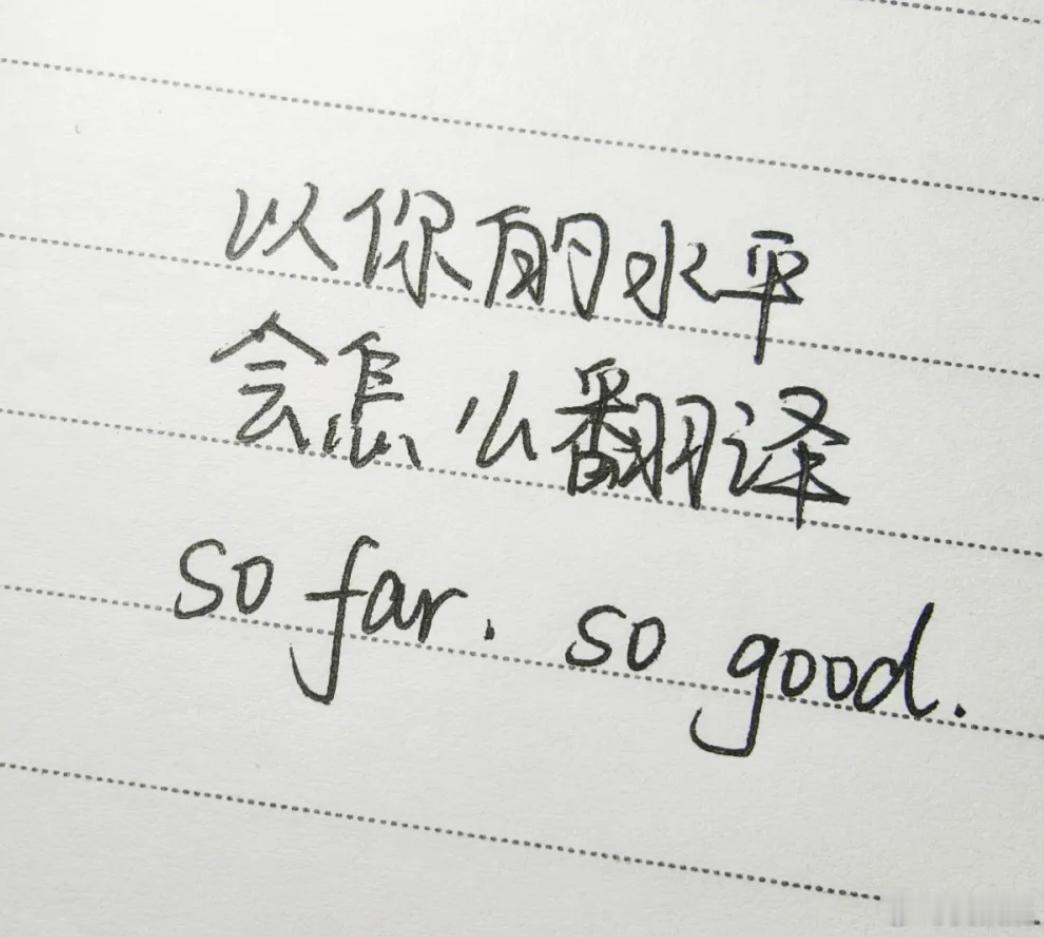 以你的水平
会怎么翻译
so far. so good.